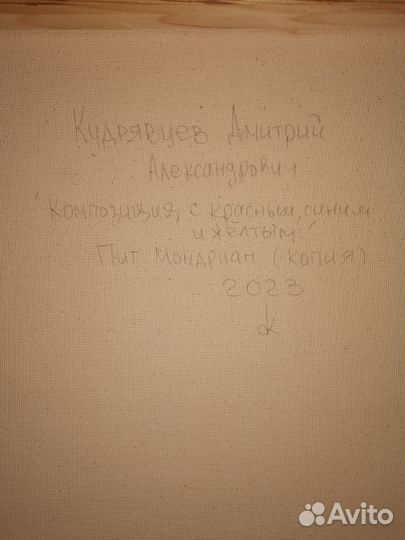 Кудрявцев Дмитрий
Александрович
"Композиция с красным, синим
и жёлтым"
Пит Мондриан (копия)
2023
К
Avito